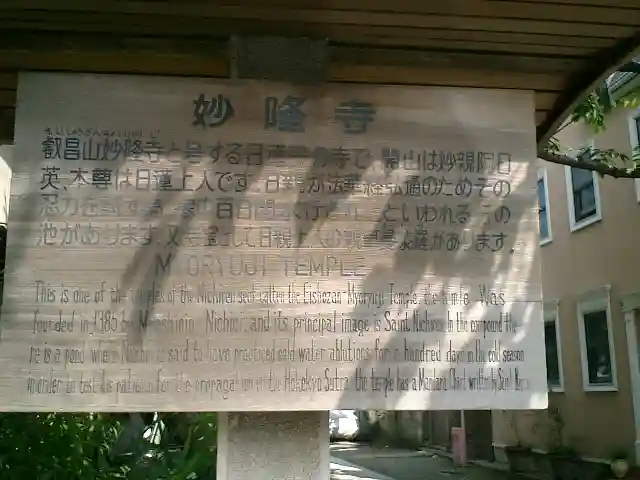 妙隆寺
えいしょうざんみょうりゅうじ
叡昌山妙隆寺と号する日蓮宗の寺で、開山は妙親院日
英、本尊は日蓮上人です。日親が法華経弘通のためその
忍力を試す為、百日間水行をしたといわれるその
池があります。又寺宝として日親上人の曼荼羅があります。
MYORYUJI TEMPLE
This is one of the temples of the Nichiren sect called the Eishozan Myoryuji Temple, the temple was
founded in 1385 by Nichiei, and its principal image is Saint Nichiren. In the compound the
re is a pond where Nichin is said to have practiced cold water ablutions for a hundred days in the cold season
in order to test his patience for the propagation of the Hokekyo Sutra, the temple has a Mandara Chart written by Saint